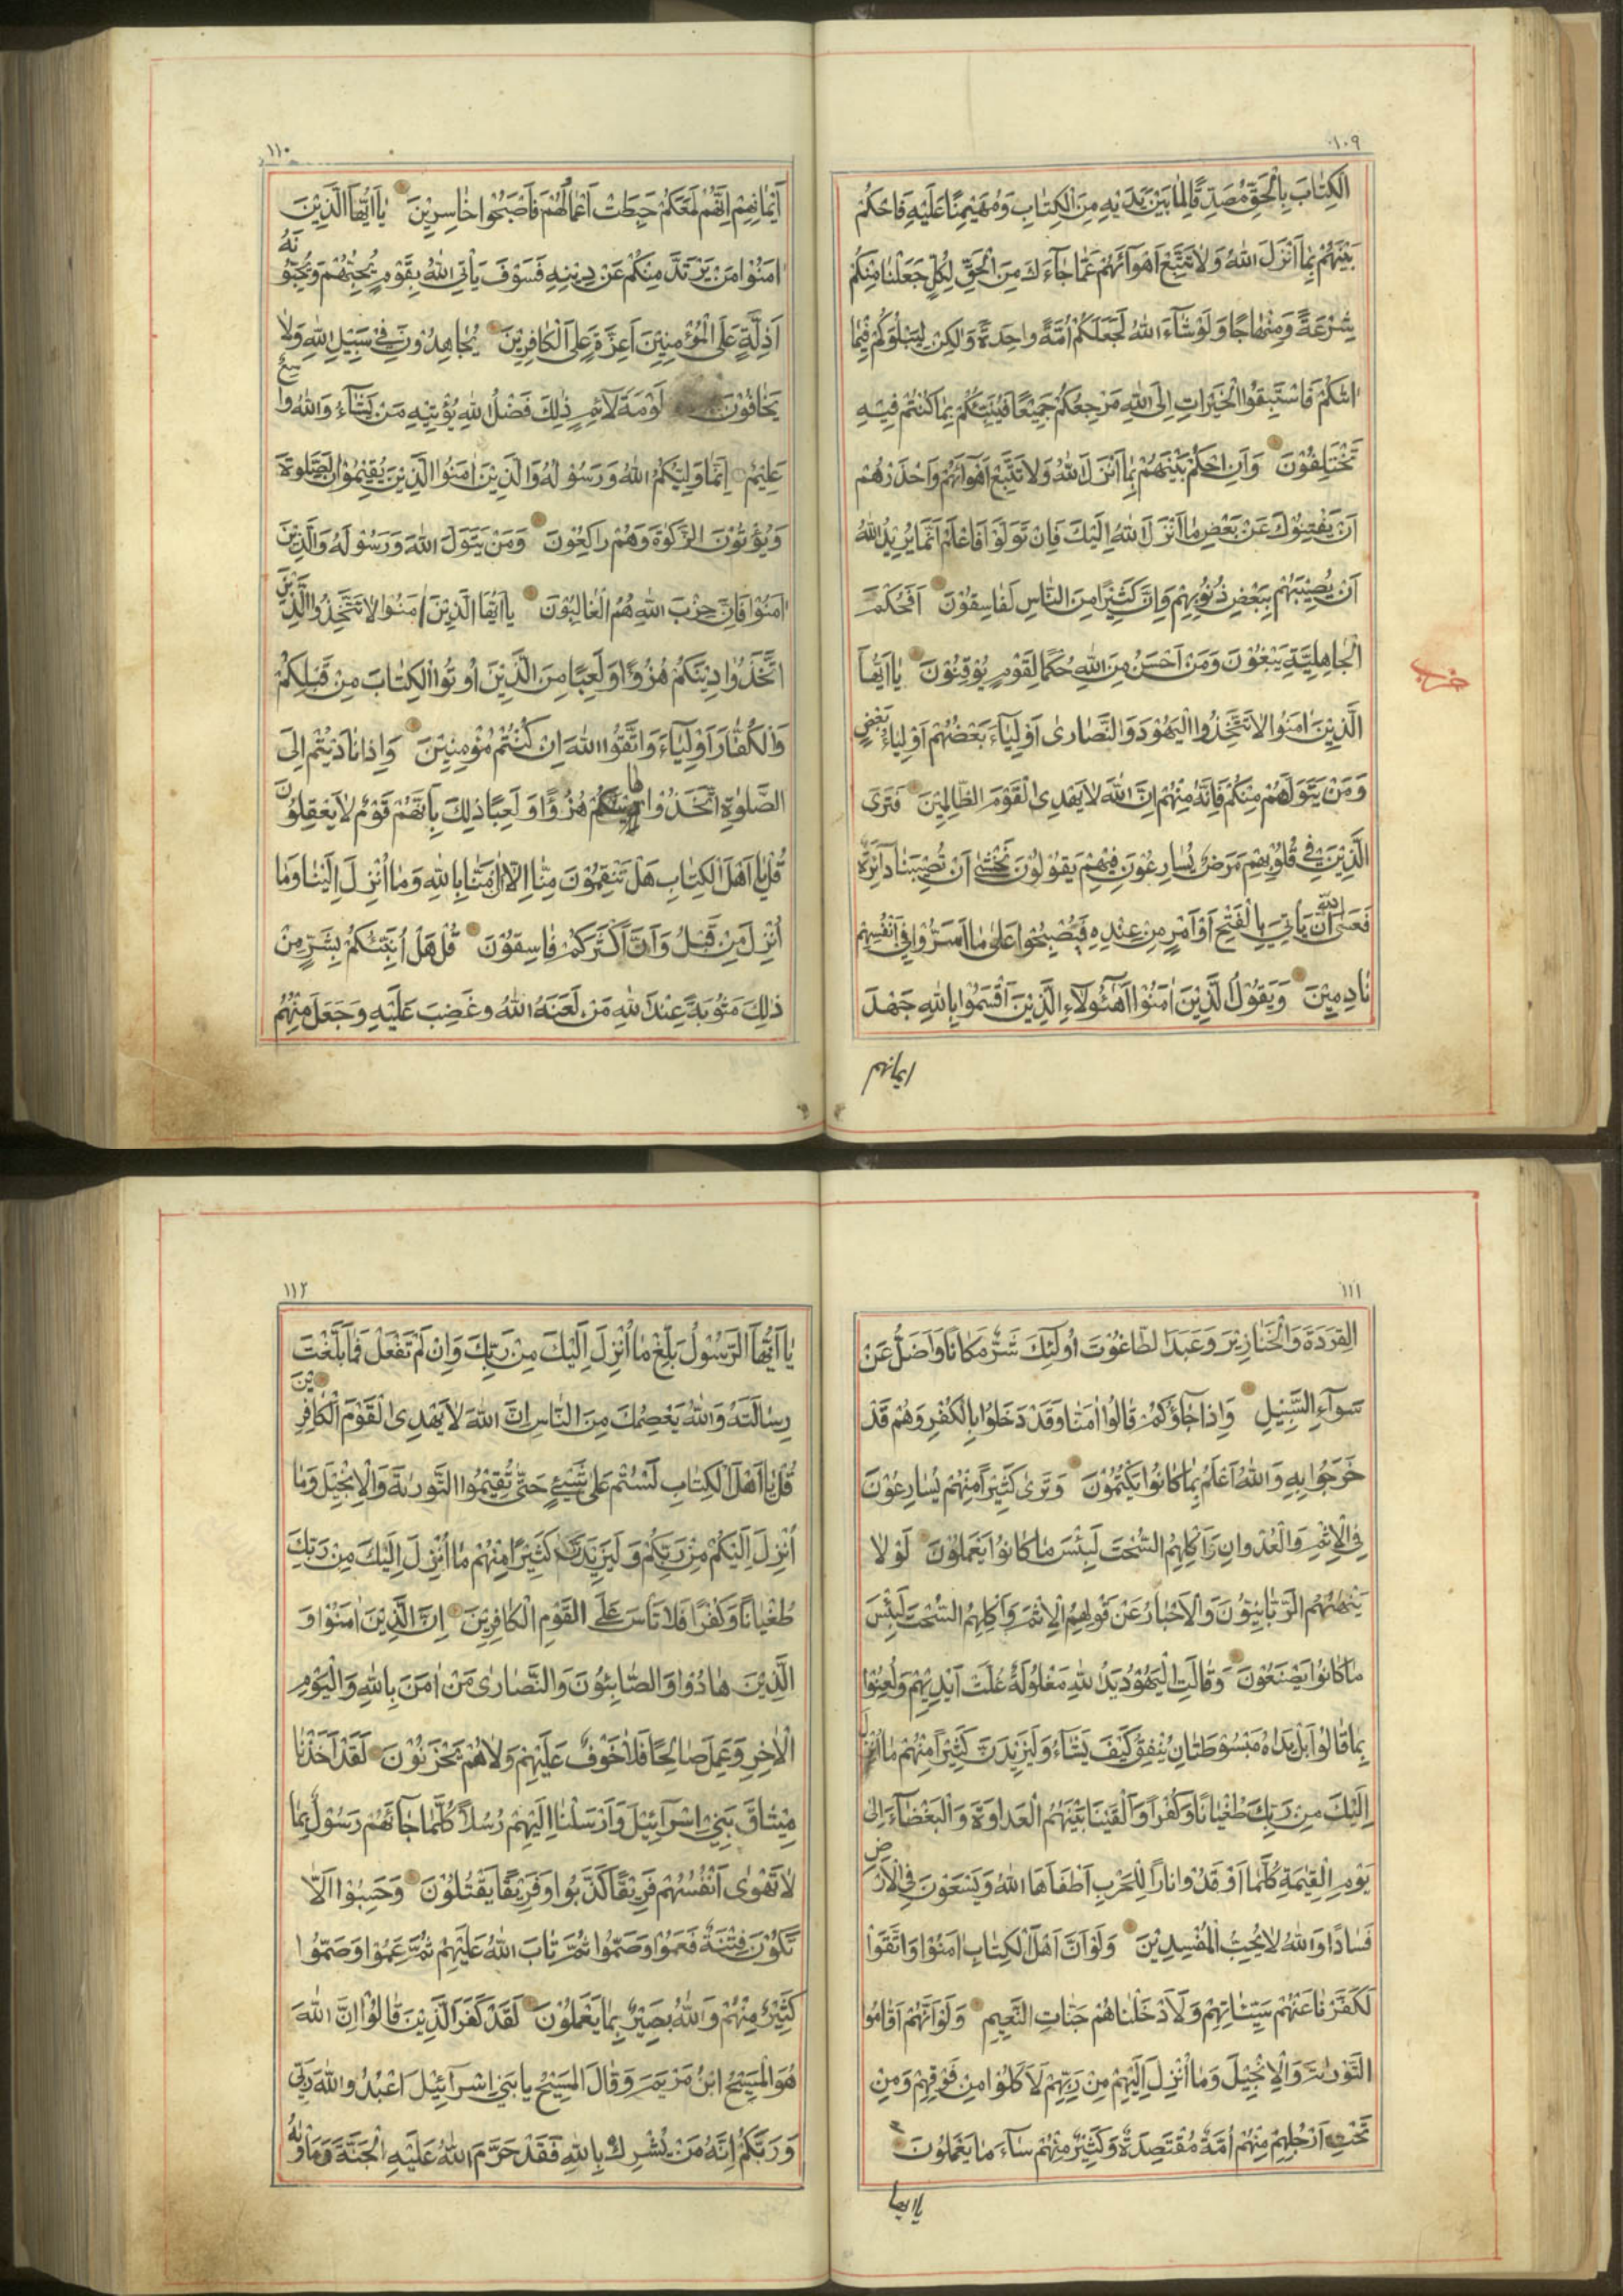 ١٠٩
الْكِتٰابَ بِالْحَقِّ مُصَدِّقًا لِمٰا بَيْنَ يَدَيْهِ مِنَ الْكِتٰابِ وَمُهَيْمِنًا عَلَيْهِ فَاحْكُمْ
بَيْنَهُمْ بِمٰا اَنْزَلَ اللّٰهُ وَلٰا تَتَّبِعْ اَهْوٰآئَهُمْ عَمّٰا جٰآءَكَ مِنَ الْحَقِّ لِكُلٍّ جَعَلْنٰا مِنْكُمْ
شِرْعَةً وَمِنْهٰاجًا وَلَوْ شٰآءَ اللّٰهُ لَجَعَلَكُمْ اُمَّةً وٰاحِدَةً وَلٰكِنْ لِيَبْلُوَكُمْ فِيْمٰا
اٰتٰىكُمْ فَاسْتَبِقُوا الْخَيْرٰاتِ اِلَى اللّٰهِ مَرْجِعُكُمْ جَمِيْعًا فَيُنَبِّئُكُمْ بِمٰا كُنْتُمْ فِيْهِ
تَخْتَلِفُوْنَ وَاَنِ احْكُمْ بَيْنَهُمْ بِمٰا اَنْزَلَ اللّٰهُ وَلٰا تَتَّبِعْ اَهْوٰآئَهُمْ وَاحْذَرْهُمْ
اَنْ يَفْتِنُوْكَ عَنْ بَعْضِ مٰا اَنْزَلَ اللّٰهُ اِلَيْكَ فَاِنْ تَوَلَّوْا فَاعْلَمْ اَنَّمٰا يُرِيْدُ اللّٰهُ
اَنْ يُصِيْبَهُمْ بِبَعْضِ ذُنُوْبِهِمْ وَاِنَّ كَثِيْرًا مِنَ النّٰاسِ لَفٰاسِقُوْنَ اَفَحُكْمَ
الْجٰاهِلِيَّةِ يَبْغُوْنَ وَمَنْ اَحْسَنُ مِنَ اللّٰهِ حُكْمًا لِقَوْمٍ يُوْقِنُوْنَ يٰا اَيُّهَا
الَّذِيْنَ اٰمَنُوا لٰا تَتَّخِذُوا الْيَهُوْدَ وَالنَّصٰارىٰ اَوْلِيٰآءَ بَعْضُهُمْ اَوْلِيٰآءُ بَعْضٍ
وَمَنْ يَتَوَلَّهُمْ مِنْكُمْ فَاِنَّهُ مِنْهُمْ اِنَّ اللّٰهَ لٰا يَهْدِى الْقَوْمَ الظّٰالِمِيْنَ فَتَرَى
الَّذِيْنَ فِى قُلُوْبِهِمْ مَرَضٌ يُسٰارِعُوْنَ فِيْهِمْ يَقُوْلُوْنَ نَخْشٰى اَنْ تُصِيْبَنٰا دٰآئِرَةٌ
فَعَسَى اللّٰهُ اَنْ يَأْتِيَ بِالْفَتْحِ اَوْ اَمْرٍ مِنْ عِنْدِهِ فَيُصْبِحُوا عَلىٰ مٰا اَسَرُّوا فِى اَنْفُسِهِمْ
نٰادِمِيْنَ وَيَقُوْلُ الَّذِيْنَ اٰمَنُوْا اَهٰٓؤُلٰآءِ الَّذِيْنَ اَقْسَمُوْا بِاللّٰهِ جَهْدَ
ايمانهم
١١٠
اَيْمٰانِهِمْ اِنَّهُمْ لَمَعَكُمْ حَبِطَتْ اَعْمٰالُهُمْ فَاَصْبَحُوا خٰاسِرِيْنَ يٰا اَيُّهَا الَّذِيْنَ
اٰمَنُوْا مَنْ يَرْتَدَّ مِنْكُمْ عَنْ دِيْنِهِ فَسَوْفَ يَأْتِى اللّٰهُ بِقَوْمٍ يُحِبُّهُمْ وَيُحِبُّوْنَهُ
اَذِلَّةٍ عَلَى الْمُؤْمِنِيْنَ اَعِزَّةٍ عَلَى الْكٰافِرِيْنَ يُجٰاهِدُوْنَ فِىْ سَبِيْلِ اللّٰهِ وَلٰا
يَخٰافُوْنَ لَوْمَةَ لٰآئِمٍ ذٰلِكَ فَضْلُ اللّٰهِ يُؤْتِيْهِ مَنْ يَشٰآءُ وَاللّٰهُ وٰاسِعٌ
عَلِيْمٌ اِنَّمٰا وَلِيُّكُمُ اللّٰهُ وَرَسُوْلُهُ وَالَّذِيْنَ اٰمَنُوا الَّذِيْنَ يُقِيْمُوْنَ الصَّلٰوةَ
وَيُؤْتُوْنَ الزَّكٰوةَ وَهُمْ رٰاكِعُوْنَ وَمَنْ يَتَوَلَّ اللّٰهَ وَرَسُوْلَهُ وَالَّذِيْنَ
اٰمَنُوْا فَاِنَّ حِزْبَ اللّٰهِ هُمُ الْغٰالِبُوْنَ يٰا اَيُّهَا الَّذِيْنَ اٰمَنُوا لٰا تَتَّخِذُوا الَّذِيْنَ
اتَّخَذُوا دِيْنَكُمْ هُزُوًا وَلَعِبًا مِنَ الَّذِيْنَ اُوتُوا الْكِتٰابَ مِنْ قَبْلِكُمْ
وَالْكُفّٰارَ اَوْلِيٰآءَ وَاتَّقُوا اللّٰهَ اِنْ كُنْتُمْ مُؤْمِنِيْنَ وَاِذٰا نٰادَيْتُمْ اِلَى
الصَّلٰوةِ اتَّخَذُوْهٰا هُزُوًا وَلَعِبًا ذٰلِكَ بِاَنَّهُمْ قَوْمٌ لٰا يَعْقِلُوْنَ
قُلْ يٰا اَهْلَ الْكِتٰابِ هَلْ تَنْقِمُوْنَ مِنّٰا اِلّٰا اَنْ اٰمَنّٰا بِاللّٰهِ وَمٰا اُنْزِلَ اِلَيْنٰا وَمٰا
اُنْزِلَ مِنْ قَبْلُ وَاَنَّ اَكْثَرَكُمْ فٰاسِقُوْنَ قُلْ هَلْ اُنَبِّئُكُمْ بِشَرٍّ مِنْ
ذٰلِكَ مَثُوْبَةً عِنْدَ اللّٰهِ مَنْ لَعَنَهُ اللّٰهُ وَغَضِبَ عَلَيْهِ وَجَعَلَ مِنْهُمُ
١١١
الْقِرَدَةَ وَالْخَنٰازِيْرَ وَعَبَدَ الطّٰاغُوْتَ اُولٰئِكَ شَرٌّ مَكٰانًا وَاَضَلُّ عَنْ
سَوٰآءِ السَّبِيْلِ وَاِذٰا جٰآؤُكُمْ قٰالُوْا اٰمَنّٰا وَقَدْ دَخَلُوْا بِالْكُفْرِ وَهُمْ قَدْ
خَرَجُوْا بِهِ وَاللّٰهُ اَعْلَمُ بِمٰا كٰانُوْا يَكْتُمُوْنَ وَتَرىٰ كَثِيْرًا مِنْهُمْ يُسٰارِعُوْنَ
فِى الْاِثْمِ وَالْعُدْوٰانِ وَاَكْلِهِمُ السُّحْتَ لَبِئْسَ مٰا كٰانُوْا يَعْمَلُوْنَ لَوْلٰا
يَنْهٰهُمُ الرَّبّٰانِيُّوْنَ وَالْاَحْبٰارُ عَنْ قَوْلِهِمُ الْاِثْمَ وَاَكْلِهِمُ السُّحْتَ لَبِئْسَ
مٰا كٰانُوْا يَصْنَعُوْنَ وَقٰالَتِ الْيَهُوْدُ يَدُ اللّٰهِ مَغْلُوْلَةٌ غُلَّتْ اَيْدِيْهِمْ وَلُعِنُوْا
بِمٰا قٰالُوْا بَلْ يَدٰاهُ مَبْسُوْطَتٰانِ يُنْفِقُ كَيْفَ يَشٰآءُ وَلَيَزِيْدَنَّ كَثِيْرًا مِنْهُمْ مٰا اُنْزِلَ
اِلَيْكَ مِنْ رَبِّكَ طُغْيٰانًا وَكُفْرًا وَاَلْقَيْنٰا بَيْنَهُمُ الْعَدٰاوَةَ وَالْبَغْضٰآءَ اِلىٰ
يَوْمِ الْقِيٰمَةِ كُلَّمٰا اَوْقَدُوْا نٰارًا لِلْحَرْبِ اَطْفَاَهَا اللّٰهُ وَيَسْعَوْنَ فِى الْاَرْضِ
فَسٰادًا وَاللّٰهُ لٰا يُحِبُّ الْمُفْسِدِيْنَ وَلَوْ اَنَّ اَهْلَ الْكِتٰابِ اٰمَنُوْا وَاتَّقَوْا
لَكَفَّرْنٰا عَنْهُمْ سَيِّئٰاتِهِمْ وَلَاَدْخَلْنٰاهُمْ جَنّٰاتِ النَّعِيْمِ وَلَوْ اَنَّهُمْ اَقٰامُوا
التَّوْرٰىةَ وَالْاِنْجِيْلَ وَمٰا اُنْزِلَ اِلَيْهِمْ مِنْ رَبِّهِمْ لَاَكَلُوْا مِنْ فَوْقِهِمْ وَمِنْ
تَحْتِ اَرْجُلِهِمْ مِنْهُمْ اُمَّةٌ مُقْتَصِدَةٌ وَكَثِيْرٌ مِنْهُمْ سٰآءَ مٰا يَعْمَلُوْنَ
يا ايها
١١٢
يٰا اَيُّهَا الرَّسُوْلُ بَلِّغْ مٰا اُنْزِلَ اِلَيْكَ مِنْ رَبِّكَ وَاِنْ لَمْ تَفْعَلْ فَمٰا بَلَّغْتَ
رِسٰالَتَهُ وَاللّٰهُ يَعْصِمُكَ مِنَ النّٰاسِ اِنَّ اللّٰهَ لٰا يَهْدِى الْقَوْمَ الْكٰافِرِيْنَ
قُلْ يٰا اَهْلَ الْكِتٰابِ لَسْتُمْ عَلىٰ شَيْئٍ حَتّٰى تُقِيْمُوا التَّوْرٰىةَ وَالْاِنْجِيْلَ وَمٰا
اُنْزِلَ اِلَيْكُمْ مِنْ رَبِّكُمْ وَلَيَزِيْدَنَّ كَثِيْرًا مِنْهُمْ مٰا اُنْزِلَ اِلَيْكَ مِنْ رَبِّكَ
طُغْيٰانًا وَكُفْرًا فَلٰا تَأْسَ عَلَى الْقَوْمِ الْكٰافِرِيْنَ اِنَّ الَّذِيْنَ اٰمَنُوْا وَ
الَّذِيْنَ هٰادُوْا وَالصّٰابِئُوْنَ وَالنَّصٰارىٰ مَنْ اٰمَنَ بِاللّٰهِ وَالْيَوْمِ
الْاٰخِرِ وَعَمِلَ صٰالِحًا فَلٰا خَوْفٌ عَلَيْهِمْ وَلٰا هُمْ يَحْزَنُوْنَ لَقَدْ اَخَذْنٰا
مِيْثٰاقَ بَنِىْ اِسْرٰآئِيْلَ وَاَرْسَلْنٰا اِلَيْهِمْ رُسُلًا كُلَّمٰا جٰآئَهُمْ رَسُوْلٌ بِمٰا
لٰا تَهْوىٰ اَنْفُسُهُمْ فَرِيْقًا كَذَّبُوْا وَفَرِيْقًا يَقْتُلُوْنَ وَحَسِبُوْا اَلّٰا
تَكُوْنَ فِتْنَةٌ فَعَمُوْا وَصَمُّوْا ثُمَّ تٰابَ اللّٰهُ عَلَيْهِمْ ثُمَّ عَمُوْا وَصَمُّوْا
كَثِيْرٌ مِنْهُمْ وَاللّٰهُ بَصِيْرٌ بِمٰا يَعْمَلُوْنَ لَقَدْ كَفَرَ الَّذِيْنَ قٰالُوْا اِنَّ اللّٰهَ
هُوَ الْمَسِيْحُ ابْنُ مَرْيَمَ وَقٰالَ الْمَسِيْحُ يٰا بَنِىْ اِسْرٰآئِيْلَ اعْبُدُوا اللّٰهَ رَبِّى
وَرَبَّكُمْ اِنَّهُ مَنْ يُشْرِكْ بِاللّٰهِ فَقَدْ حَرَّمَ اللّٰهُ عَلَيْهِ الْجَنَّةَ وَمَأْوٰيهُ